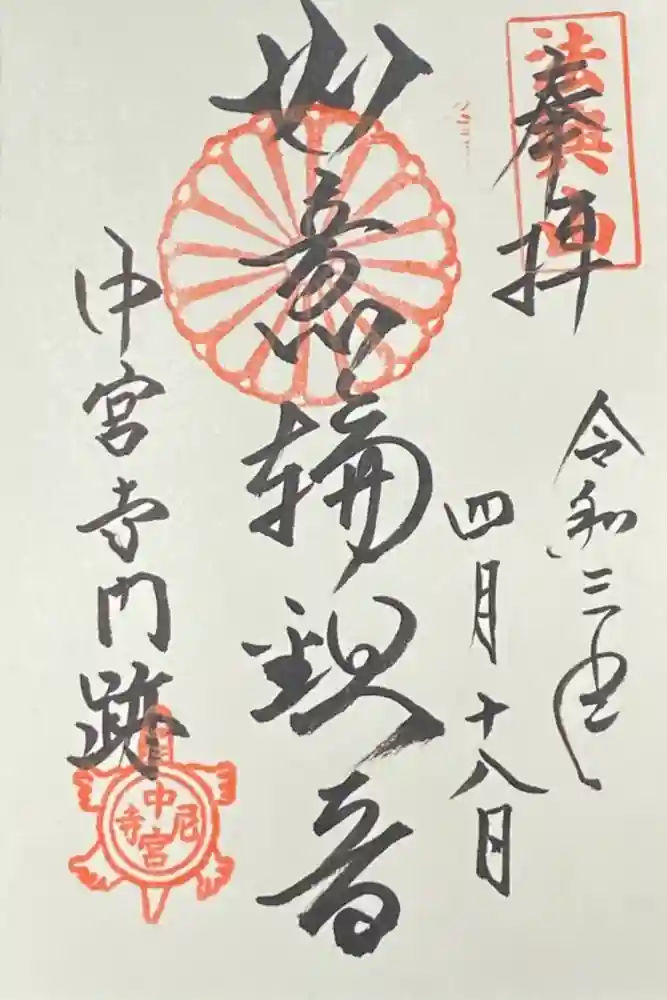 奉拝
法興山
令和三年
四月十八日
如意輪観音
中宮寺門跡
中宮尼寺